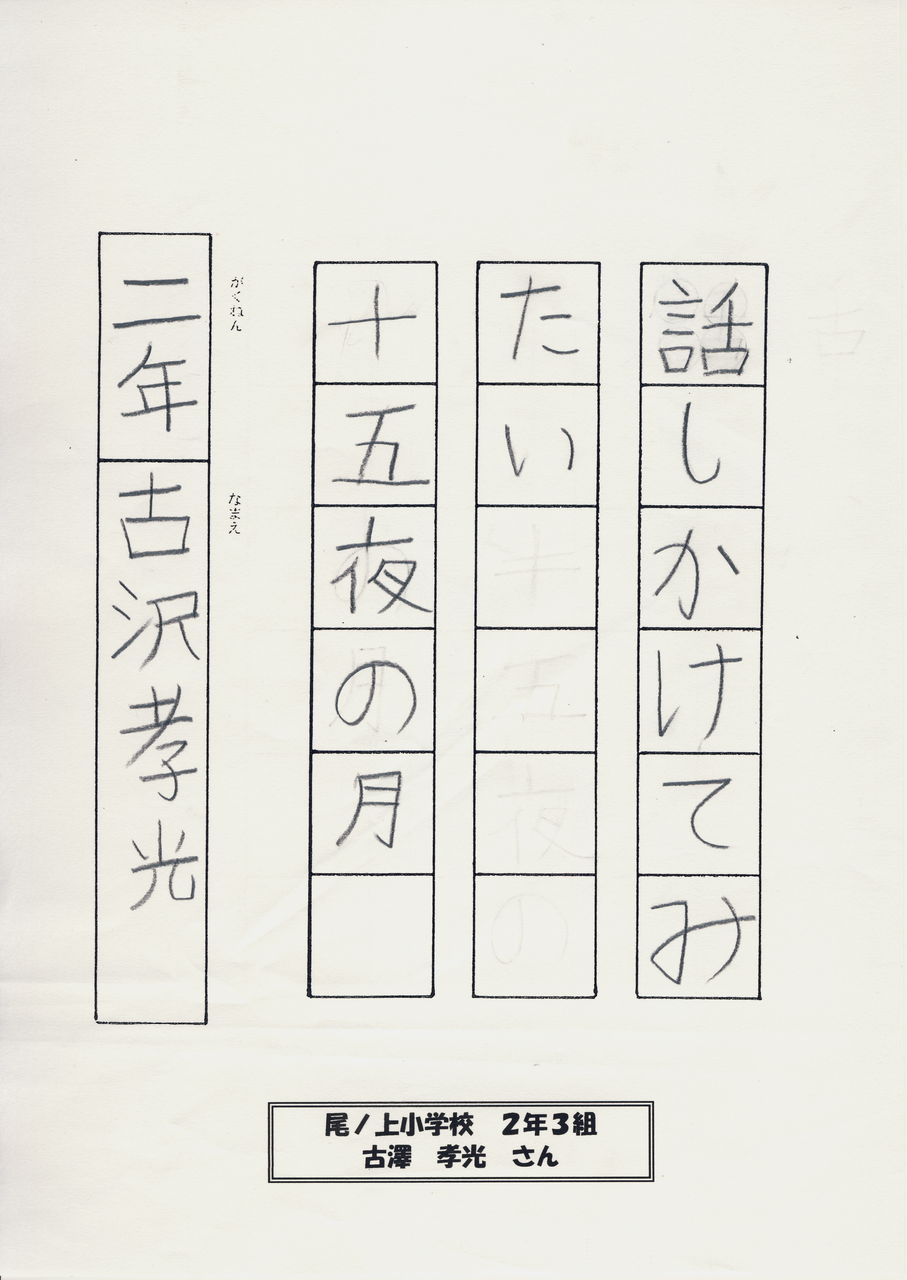 話しかけてみ
たい
十五夜の月
がくねん
二年
なまえ
古沢孝光
尾ノ上小学校 2年3組
古澤 孝光 さん